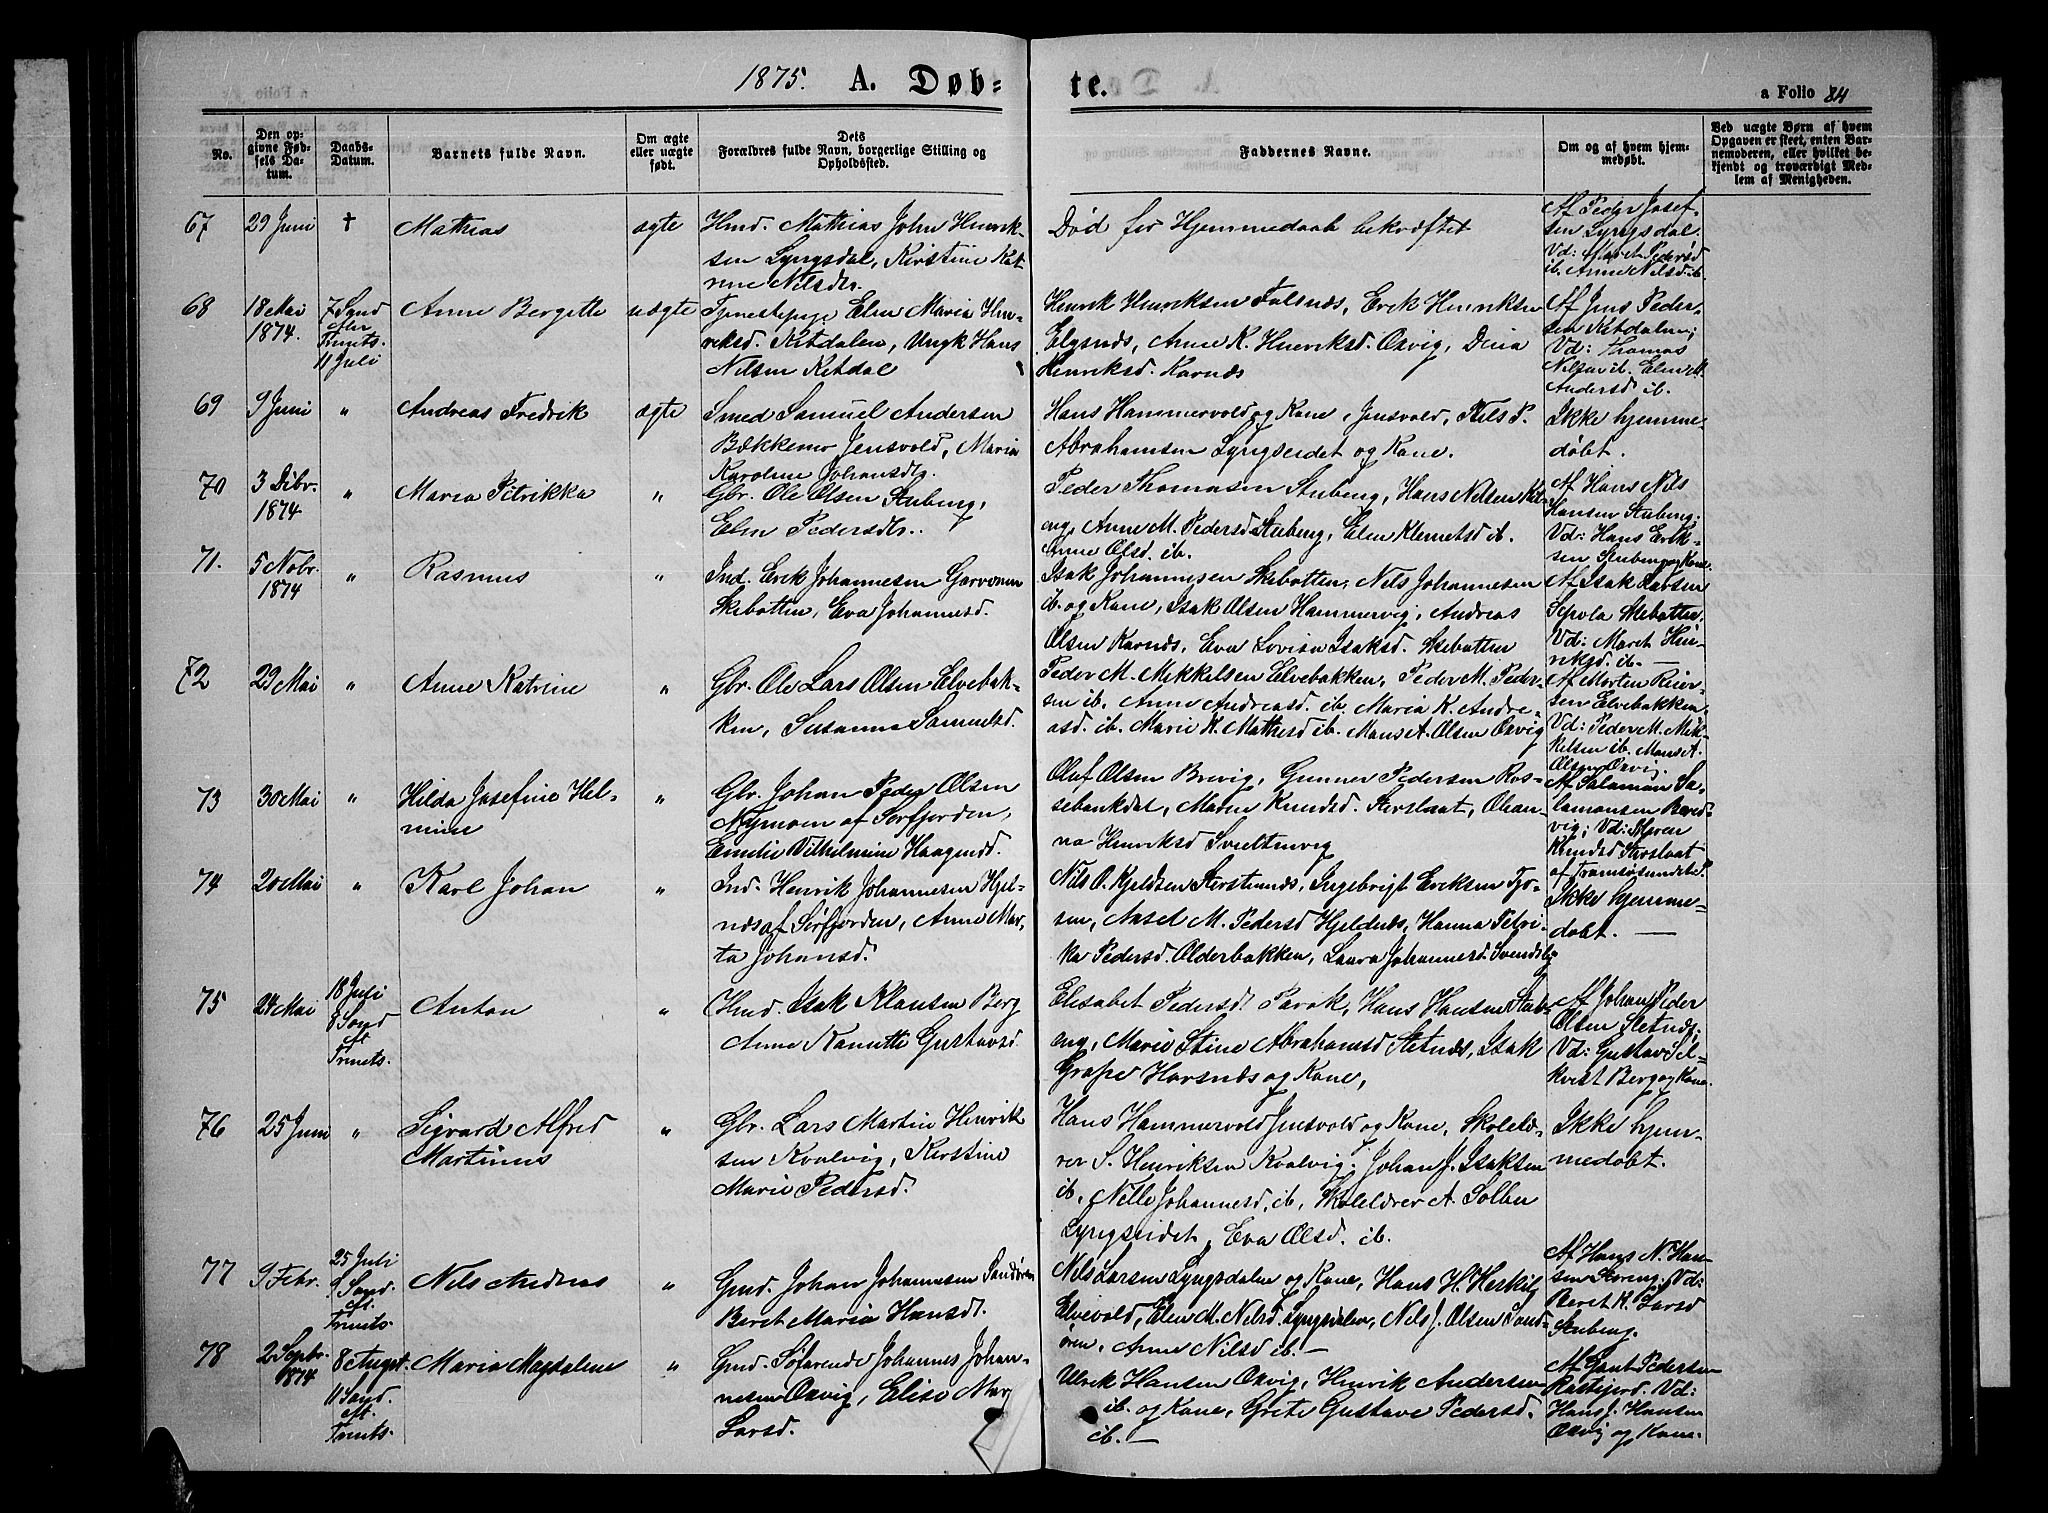 1875. A. Døb=
te.
a Folio 84
No.
Den op-
givne Fød-
sels Da-
tum.
Daabs-
Datum.
Barnets fulde Navn.
Om ægte
eller uægte
født.
Dets
Forældres fulde Navn, borgerlige Stilling og
Opholdssted.
Faddernes Navne.
Om og af hvem hjem-
medøbt.
Ved uægte Børn af hvem
Opgaven er skeet, enten Bar-
nemoderen, eller hvilket be-
kjendt og troværdigt Med-
lem af Menigheden.
67
29 Juni
†
Mathias
ægte
Hmd. Mathias John Henrik-
sen Lyngsdal, Kirstine Kat-
rine Nilsdtr.
Død før Hjemmedaab bekræftet
Af Peder Josef-
sen Lyngsdal.
Vd: Maret Pedersd
ib. Anne Nilsd ib.
68
18 Mai
1874.
7 Synd
efter
Trinits.
11 Juli
Anne Bergitte
uægte
Tjenestepige Elen Maria Hen-
riksd. Kitdalen, Ungk Hans
Nilsen Kitdal
Henrik Henriksen Falsnæs, Erik Henriksen
Elgsnæs, Anne K. Henriksd. Oxvig, Dina
Henriksd. Karnæs
Af Jens Peder-
sen Kitdalen;
Vd: Thomas
Nilsen ib. Elen M.
Andersd ib.
69
9 Juni
"
Andreas Fredrik
ægte
Smed Samuel Andersen
Bækkemo Jensvold, Maria
Karoline Johansdtr.
Hans Hammervold og Kone, Jensvold, Nils P.
Abrahamsen Lyngseidet og Kone.
Ikke hjemme-
døbt.
70
3 Dibr.
1874
"
Maria Petrikka
"
Gbr. Ole Olsen Stubeng,
Elen Pedersdtr.
Peder Thomasen Stubeng, Hans Nilsen Kit-
eng, Anne M. Pedersd Stubeng, Elen Klemetsd ib.
Anne Olsd. ib.
Af Hans Nils
Hansen Stubeng.
Vd: Hans Erik-
sen Stubeng og Kone.
71.
5 Nobr.
1874
"
Rasmus
"
Ind. Erik Johannesen
Skibotten, Eva Johannesd.
Isak Johannesen Skibotten, Nils Johannesen
ib. og Kone, Isak Olsen Hammervig, Andreas
Olsen Karnæs, Eva Lovisa Isaksd. Skibotten
Af Isak Larsen
Skibotten.
Vd: Maret Hen-
riksd. ib. —
72
29 Mai
"
Anne Katrine
"
Gbr. Ole Lars Olsen Elvebak-
ken, Susanna Samuelsd.
Peder M. Mikkelsen Elvebakken, Peder M. Peder-
sen ib. Anne Andreasd. ib. Maria K. Andre-
asd. ib. Marie K. Mathisd ib. Mons A. Olsen Oxvig
Af Morten Reier-
sen Elvebakken.
Vd: Peder M. Mik-
kelsen ib. Mons A.
Olsen Oxvig.
73
30 Mai
"
Hilda Josefine Hel-
mine
"
Gbr. Johan Peder Olsen
Nymoen af Sørfjorden,
Emelie Vilhelmine Haagensd.
Olaf Olsen Brevig, Gunner Pedersen Ros-
sebankdal, Maren Knudsd. Storslaat, Olean-
na Henriksd
Af Salamon Sa-
lamonsen Bred-
vig; Vd: Maren
Knudsd Storslaat
af Tromsøsundets P.
74
20 Mai
"
Karl Johan
"
Ind. Henrik Johannesen Hjel-
næs af Sørfjorden, Anne Mar-
ta Johansd.
Nils O. Kjeldsen Storstenæs, Ingebrigt Eriksen
Axsel M. Pedersd Hjeldnæs, Hanna Petri-
ka Pedersd. Olderbakken, Laura Johannesd.
Ikke hjemme-
døbt. —
75
24 Mai
18 Juli
8 Sønd
eft
Trinits.
Anton
"
Hmd. Isak Klausen Berg
Anne Kanutte Gustavsd.
Elisabet Pedersdt Parak, Hans Hansen Stub-
eng, Marie Stine Abrahamsd Sletnæs, Isak
Grape Horsnæs og Kone,
Af Johan Peder
Olsen Sletnæs.
Vd: Gustav
Berg og Kone.
76
25 Juni
"
Sigvard Alfred
Martinus
"
Gbr. Lars Martin Henrik
sen Kvalvig, Kirstine
Marie Pedersd.
Hans Hammervold Jensvold og Kone, Skolelæ-
rer S. Henriksen Kvalvig, Johan J. Isaksen
ib, Nille Johannesd. ib, Skolelærer A. Solber
Lyngseidet, Eva Olsd. ib.
Ikke hjem-
medøbt.
77
9 Febr.
25 Juli
9 Sønd.
eft.
Trinits.
Nils Andreas
"
Gmd. Johan Johannesen Sandøren
Beret Maria Hansdt.
Nils Larsen Lyngsdalen og Kone, Hans H.
Elvevold, Elen M. Nilsd. Lyngsdalen, Nils J. Olsen Sand-
ören, Anne Nilsd ib. —
Af Hans N. Han-
sen Storeng. Vd:
Beret K. Larsd
Stubeng.
78
2 Septbr.
1874
8 August.
11 Sønd.
eft.
Trinits.
Maria Magdalene
"
Gmd. Søfarende Johannes Johan-
nesen Oxvig, Elise Mar
Larsd.
Ulrik Hansen Oxvig, Henrik Andersen
ib. og Kone, Grete Gustave Pedersd.
ib. —
Af Gant Pedersen
Rasteford. Vd:
Hans J. Hansen
Oxvig og Kone.